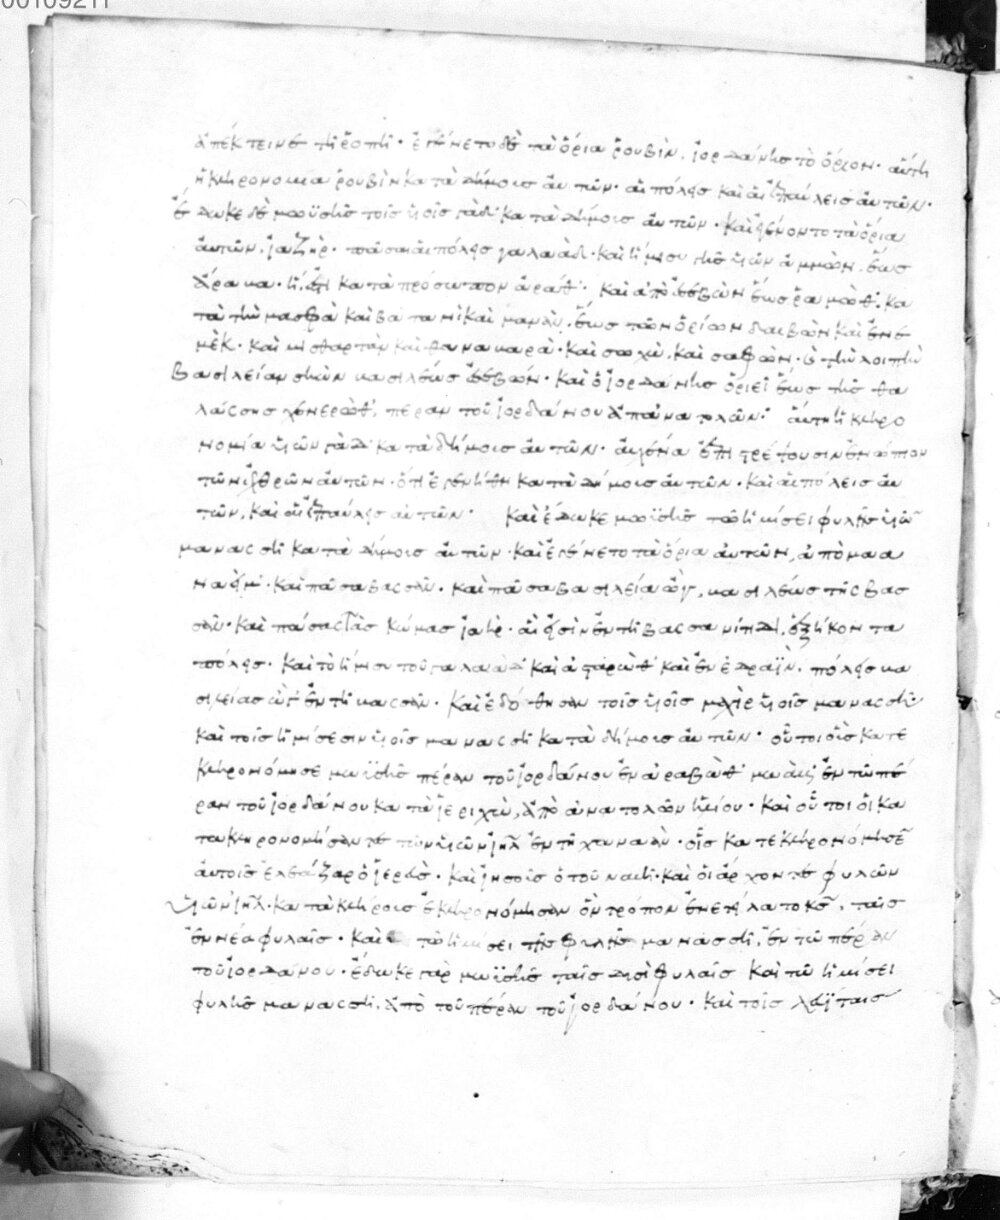 00109211
ἀπέκτεινε τῆ ῥοπῆ· ἐγένετο δὲ τὰ ὅρια ῥουβὴν, ἰορδάνης τὸ ὅριον· αὕτη
ἡ κληρονομία ῥουβὴν κατὰ δήμοις αὐτῶν· αἱ πόλεις καὶ αἱ ἐπαύλεις αὐτῶν·
ἔδωκε δὲ μωϋσῆς τοῖς υἱοῖς γὰδ κατὰ δήμοις αὐτῶν· καὶ ἐγένοντο τὰ ὅρια
αὐτῶν, ἰαζὴρ· πᾶσαι αἱ πόλεις γαλαὰδ· καὶ ἥμισυ τῆς υἱῶν ἀμμὼν, ἕως
κατὰ πρόσωπον ἀράθ· καὶ ἀπὸ ἐσεβὼν ἕως ῥαμὼθ, κα
τὰ τὴν μασφὰ καὶ βατανὶ καὶ μαναὶν, ἕως τῶν ὁρίων δαιβὼν καὶ ἐνε
μὲκ· καὶ καὶ καὶ σωχὼ, καὶ σαφὼν· τὴν λοιπὴν
βασιλείαν σηὼν βασιλέως ἐσεβών· καὶ ὁ ἰορδάνης ὁριεῖ ἕως τῆς θα
λάσσης χενερὼθ, πέραν τοῦ ἰορδάνου ἀπ' ἀνατολῶν· αὕτη ἡ κληρο
νομία υἱῶν γὰδ κατὰ δήμοις αὐτῶν· αὐχένα ἐπιστρέψουσιν ἐνώπιον
τῶν ἐχθρῶν αὐτῶν· ὅτι ἐγενήθη κατὰ δήμοις αὐτῶν· καὶ αἱ πόλεις αὐ
τῶν, καὶ αἱ ἐπαύλεις αὐτῶν· καὶ ἔδωκε μωϋσῆς τῶ ἡμίσει φυλῆς υἱῶ
μανασσῆ κατὰ δήμοις αὐτῶν· καὶ ἐγένετο τὰ ὅρια αὐτῶν, ἀπὸ μαα
ναείμ· καὶ πᾶσα βασσὰν· καὶ πᾶσα βασιλεία ὢγ, βασιλέως τῆς βασ
σὰν· καὶ πάσας τὰς κώμας ἰαήρ· αἵ εἰσιν ἐν τῆ βασανίτιδι, ἑξήκοντα
πόλεις· καὶ τὸ ἥμισυ τοῦ γαλαὰδ καὶ ἀσταρὼθ καὶ ἐν ἐδραΐν, πόλεις βα
σιλείας ὢγ ἐν τῆ βασσὰν· καὶ ἐδόθησαν τοῖς υἱοῖς μαχὶρ υἱοῖς μανασσῆ
καὶ τοῖς ἡμίσεσιν υἱοῖς μανασσῆ κατὰ δήμοις αὐτῶν· οὗτοι οἷς κατε
κληρονόμησε μωϋσῆς πέραν τοῦ ἰορδάνου ἐν ἀραβὼθ μωὰβ ἐν τῶ πέ
ραν τοῦ ἰορδάνου κατὰ ἱεριχὼ, ἀπὸ ἀνατολῶν ἡλίου· καὶ οὗτοι οἱ κα
τακληρονομήσαντες τῶν υἱῶν ἰηλ ἐν τῆ χαναὰν· οἷς κατεκληρονόμησε
αὐτοῖς ἐλεάζαρ ὁ ἱερεὺς· καὶ ἰησοῦς ὁ τοῦ ναυῆ· καὶ οἱ ἄρχοντες φυλῶν
υἱῶν ἰηλ· κατὰ κλήροις ἐκληρονόμησαν ὃν τρόπον ἐνετείλατο κς, ταῖς
ἐννέα φυλαῖς· καὶ τῶ ἡμίσει τῆς φυλῆς μανασσῆ, ἐν τῶ πέραν
τοῦ ἰορδάνου· ἔδωκε γὰρ μωϋσῆς ταῖς δυσὶ φυλαῖς καὶ τῶ ἡμίσει
φυλῆς μανασσῆ, ἀπὸ τοῦ πέραν τοῦ ἰορδάνου· καὶ τοῖς λευίταις